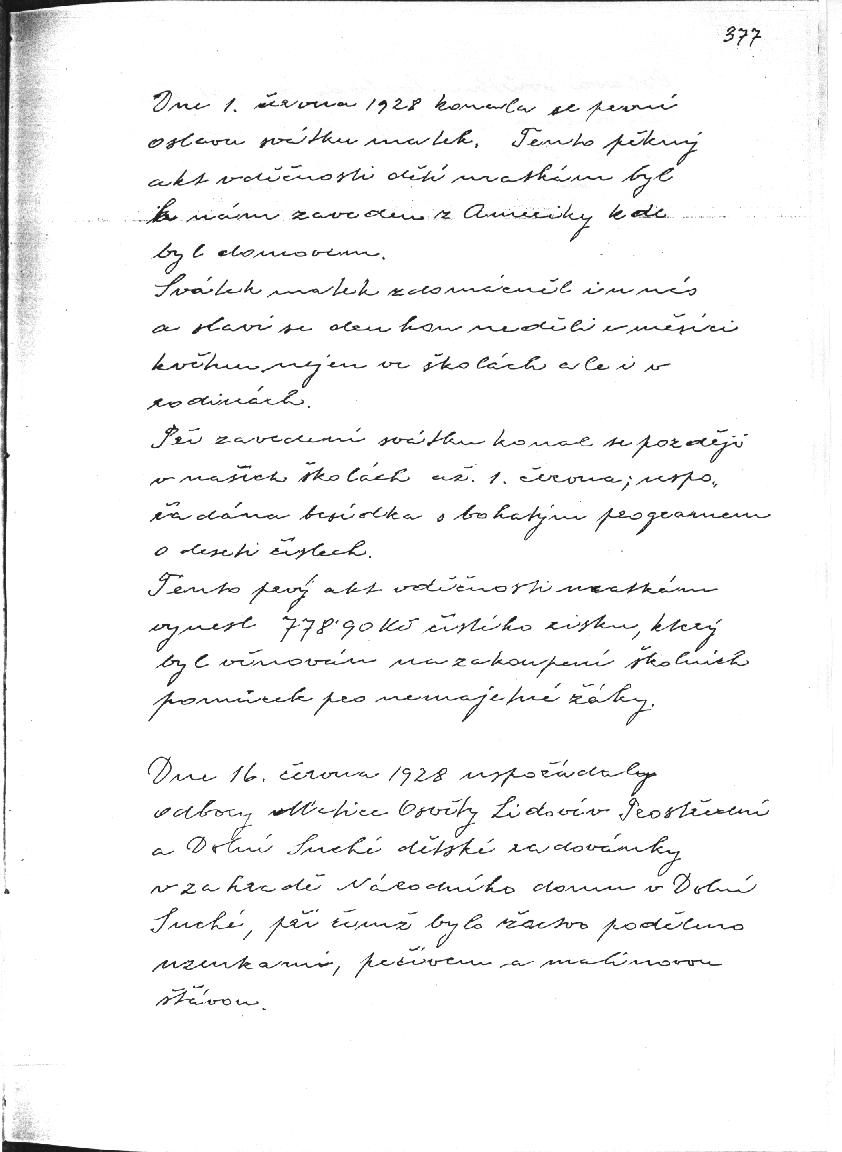 377
Dne 1. června 1928 konala se první
oslava svátku matek. Tento pěkný
akt vděčnosti dětí matkám byl
k nám zaveden z Ameriky kde
byl domovem.
Svátek matek zdomácněl i u nás
a slaví se den kou neděli v měsíci
květnu nejen ve školách ale i v
rodinách.
Při zavedení svátku konal se později
v našich školách až. 1. června; uspo„
řádána besídka s bohatým programem
o deseti číslech.
Tento prvý akt vděčnosti matkám
vynesl 778·90 Kč čistého zisku, který
byl věnován na zakoupení školních
pomůcek pro nemajetné žáky.
Dne 16. června 1928 uspořádaly
odbory Matice Osvěty Lidové v Prostřední
a Dolní Suché dětské radovánky
v zahradě Národního domu v Dolní
Suché, při čemž bylo žactvo poděleno
uzenkami, pečivem a malinovou
šťávou.